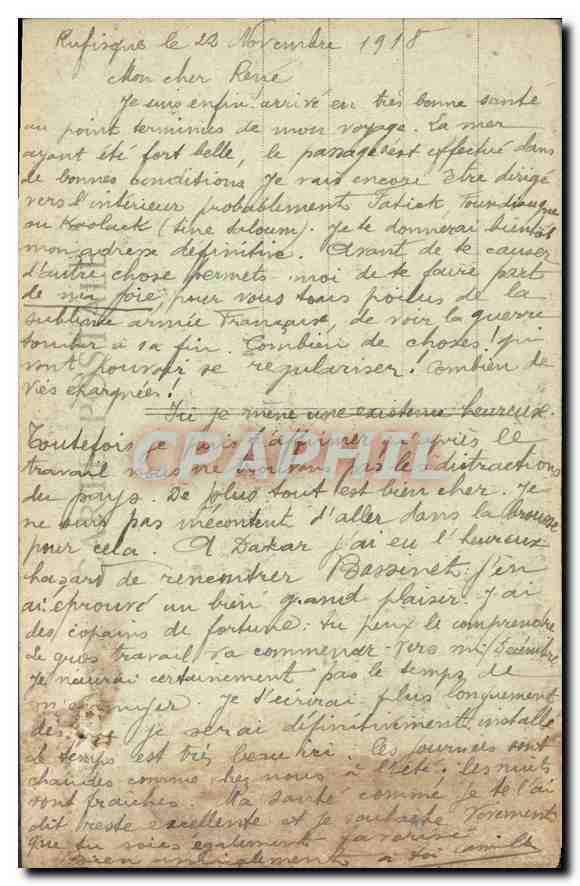 Rufisque le 22 Novembre 1918
Mon cher René
Je suis enfin arrivé en très bonne santé
au point terminus de mon voyage. La mer
ayant été fort belle, le passage s'est effectué dans
de bonnes conditions. Je vais encore être dirigé
vers l'intérieur probablement Fatick, Foundiougne
ou Kaolack (Sine Saloum). Je te donnerai bientôt
mon adresse définitive. Avant de te causer
d'autre chose permets-moi de te faire part
de ma joie, pour vous tous poilus de la
sublime armée Française, de voir la guerre
toucher à sa fin. Combien de choses! qui
vont pouvoir se regulariser! Combien de
vies épargnées!
Ici je mène une existence heureuse.
Toutefois je puis t'affirmer qu'après le
travail nous ne trouvons pas les distractions
du pays. De plus tout est bien cher. Je
ne suis pas mécontent d'aller dans la brousse
pour cela. A Dakar j'ai eu l'heureux
hasard de rencontrer Bassinet: j'en
ai éprouvé un bien grand plaisir. J'ai
des copains de fortune: tu peux le comprendre
Le gros travail va commencer vers mi/Décembre
Je n'aurai certainement pas le temps de
m'ennuyer. Je t'écrirai plus longuement
dès que je serai définitivement installé
Le temps est très beau ici. Les journées sont
chaudes comme chez nous à l'été; les nuits
sont fraîches. Ma santé comme je te l'ai
dit reste excellente et je souhaite vivement
que tu soies également favorisé
Bien amicalement à toi Camille
CARTE POSTALE
CPAPHIL